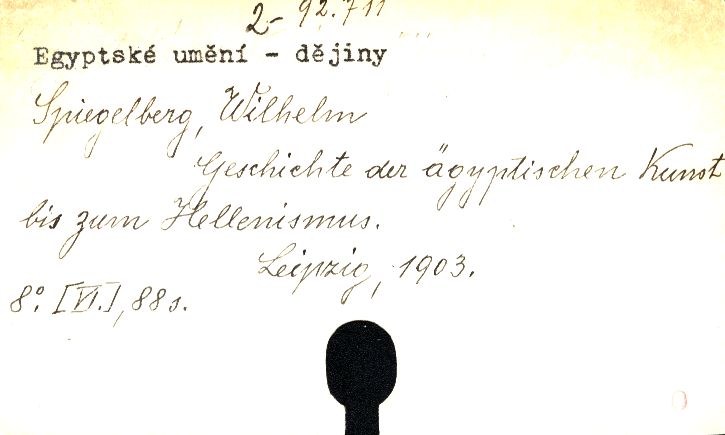 2- 92.711
Egyptské umění - dějiny
Spiegelberg, Wilhelm
Geschichte der ägyptischen Kunst
bis zum Hellenismus.
Leipzig, 1903.
8°. [VI.], 88 s.